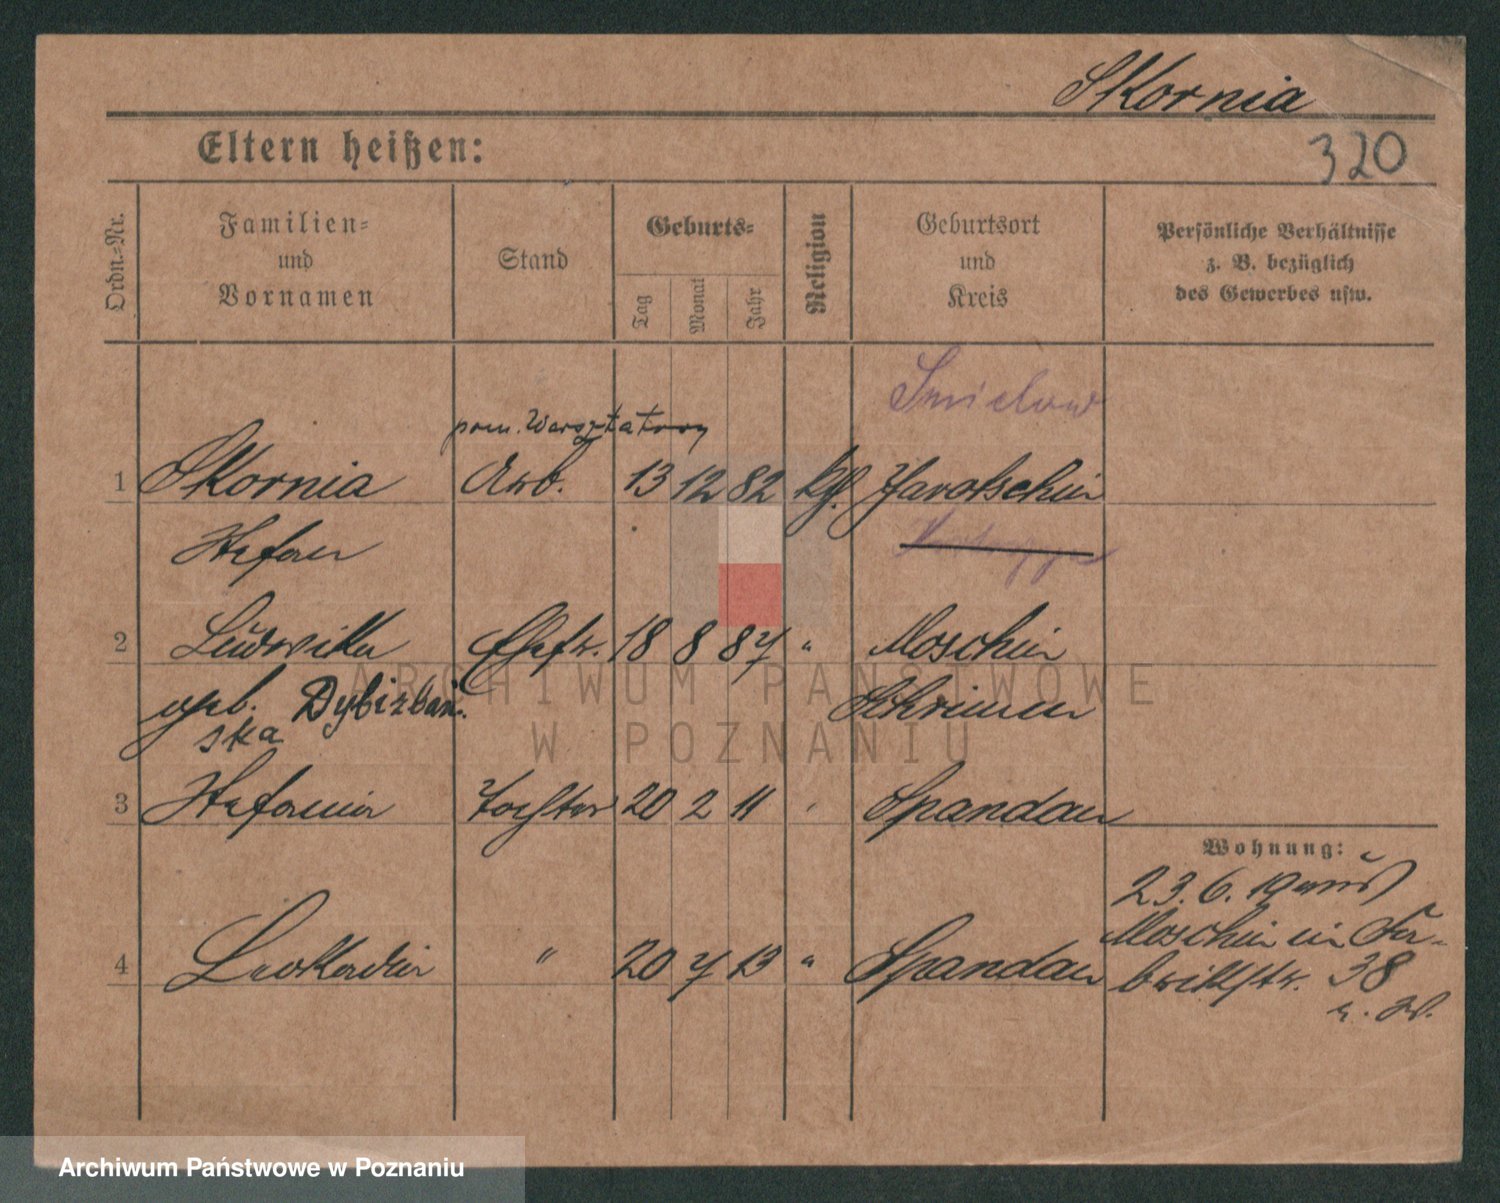 Skornia
320
Eltern heißen:
Ordn.-Nr.
Familien-
und
Vornamen
Stand
Geburts-
Tag
Monat
Jahr
Religion
Geburtsort
und
Kreis
Persönliche Verhältnisse
z. B. bezüglich
des Gewerbes usw.
Smielow
pom. Warsztatowy
1 Skornia Arb. 13 12 82 kth. Jarotschin
Stefan
2 Ludwika Ehefr. 18 8 87 " Moschin
geb. Dybizbań- Schrimm
ska
3 Stefania Tochter 20 2 11 " Spandau
Wohnung:
23.6.19 aus
Moschin in Fa-
4 Leokadia " 20 7 13 " Spandau
brikstr. 38
ARCHIWUM PAŃSTWOWE
W POZNANIU
Archiwum Państwowe w Poznaniu